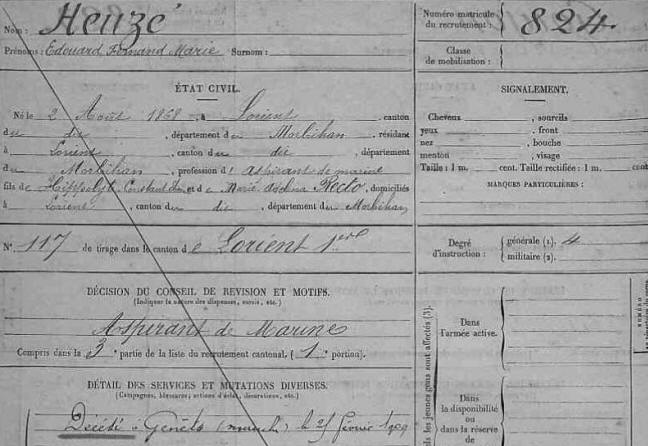 Nom : Heuzé
Numéro matricule du recrutement : 824
Prénoms : Edouard Fernand Marie Surnom :
Classe de mobilisation :
ÉTAT CIVIL.
Né le 2 Août 1868, à Lorient, canton
du dit, département du Morbihan, résidant
à Lorient, canton du dit, département
du Morbihan, profession d'aspirant de marine
fils de Hippolyte Constant et de Marie Recto, domiciliés
à Lorient, canton du dit, département du Morbihan
SIGNALEMENT.
Cheveux, sourcils
yeux, front
nez, bouche
menton, visage
Taille : 1 m. cent. Taille rectifiée : 1 m. cent.
MARQUES PARTICULIÈRES :
N° 117 de tirage dans le canton de Lorient 1er
Degré d'instruction : générale (1). 4
militaire (2).
DÉCISION DU CONSEIL DE REVISION ET MOTIFS.
(Indiquer la nature des dispenses, sursis, etc.)
Aspirant de Marine
Compris dans la 3e partie de la liste du recrutement cantonal. (1e portion).
DÉTAIL DES SERVICES ET MUTATIONS DIVERSES.
(Campagnes, blessures, actions d'éclat, décorations, etc.)
Décédé à Genêts (manche) le 25 février 1929
les jeunes gens sont affectés (3).
Dans l'armée active.
Dans la disponibilité ou dans la réserve de
NUMÉRO